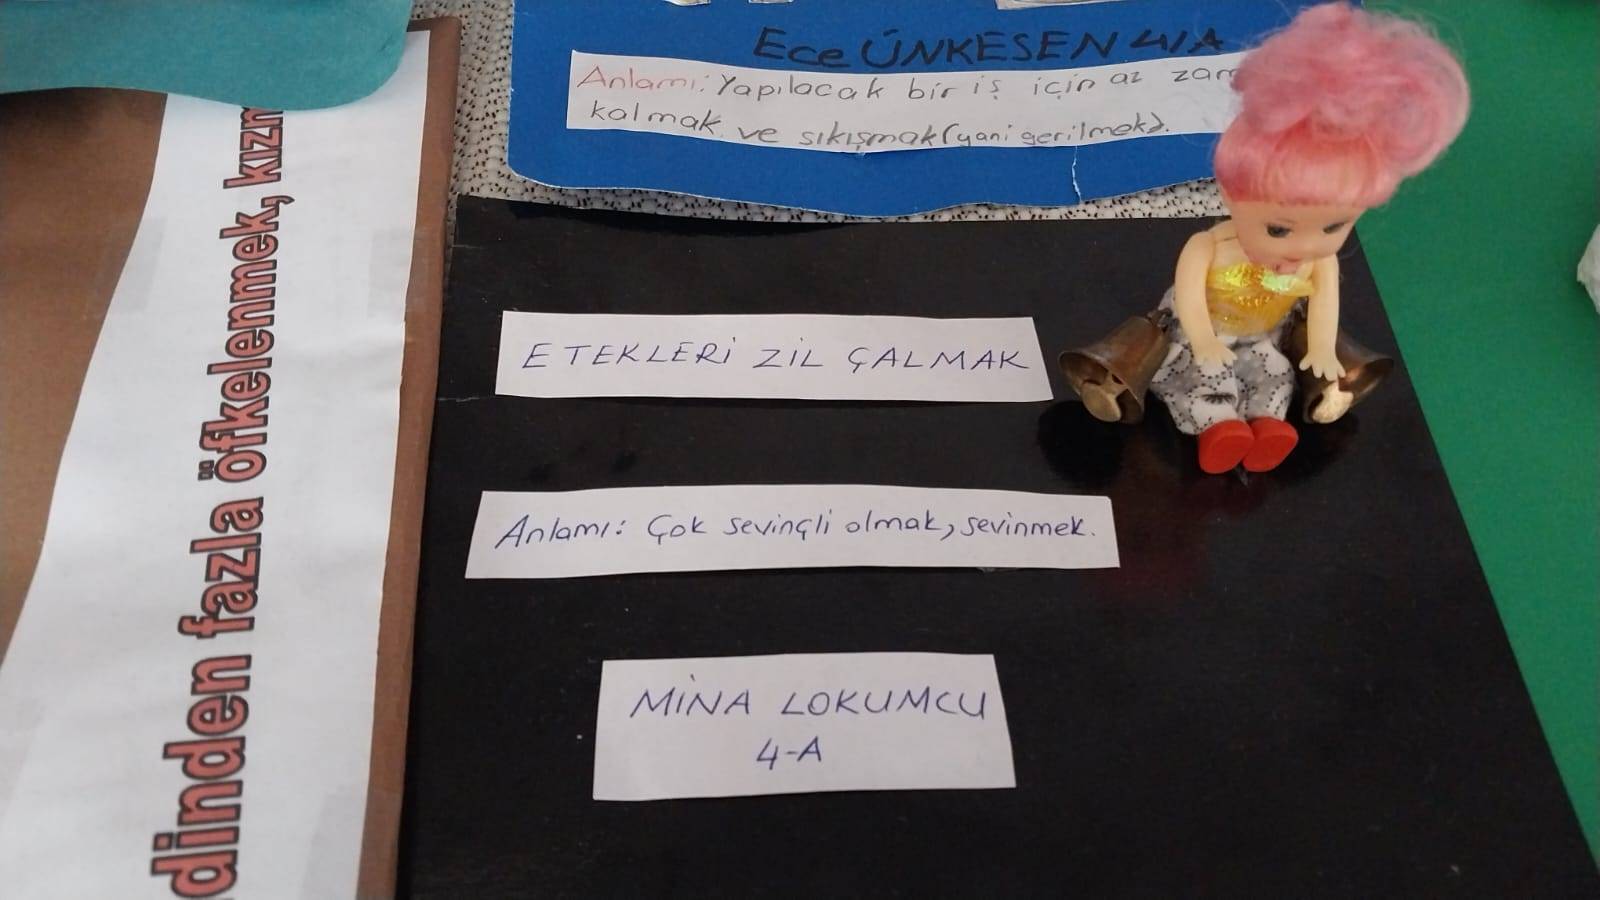 Ece ÜNKESEN 4/A
Anlamı: Yapılacak bir iş için az
kalmak ve sıkışmak (yani gerilmek).
dinden fazla öfkelenmek,
ETEKLERİ ZİL ÇALMAK
Anlamı: Çok sevinçli olmak, sevinmek.
MİNA LOKUMCU
4-A